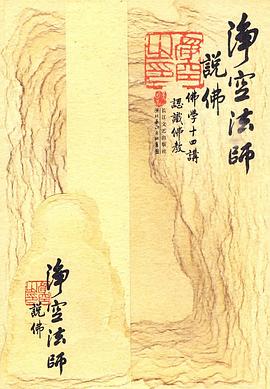 淨空法師
說佛
佛學十四講
認識佛教
长江文艺出版社
淨空法師
說佛